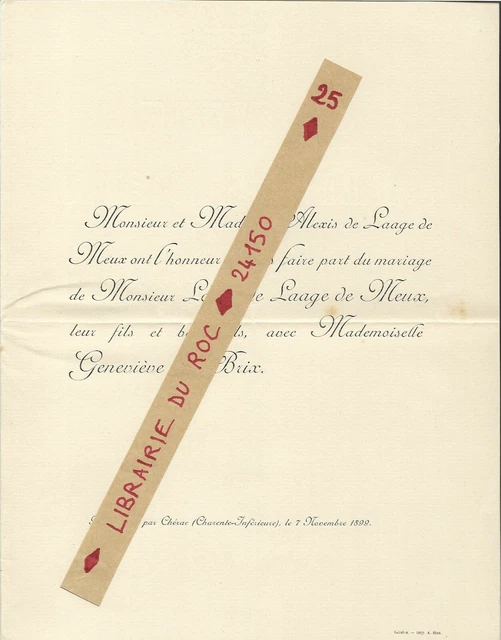 Monsieur et Mad Alexis de Laage de
Meux ont l'honneur faire part du mariage
de Monsieur L de Laage de Meux,
leur fils et b ls, avec Mademoiselle
Geneviève Brix.
par Chérac (Charente-Inférieure), le 7 Novembre 1899.
LIBRAIRIE DU ROC ♦ 24150
25